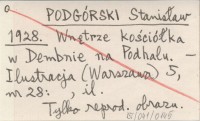 PODGÓRSKI Stanisław
1928. Wnętrze kościółka
w Dembnie na Podhalu. —
Ilustracja (Warszawa) 5,
nr 28: , il.
Tylko reprod. obrazu.